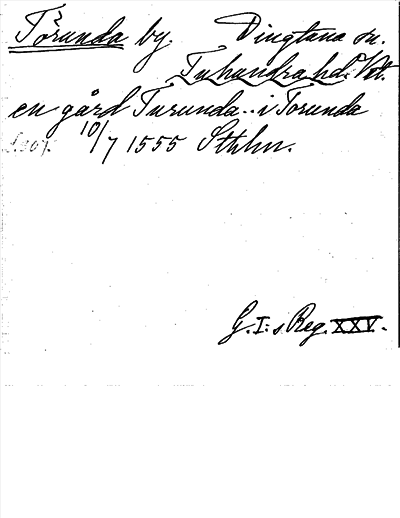 Torunda by. Dingtuna sn.
Tuhundra hd. Vstm.
en gård Turunda.. i Torunda
10/7 1555 Sthlm.
G. I:s Reg. XXV.